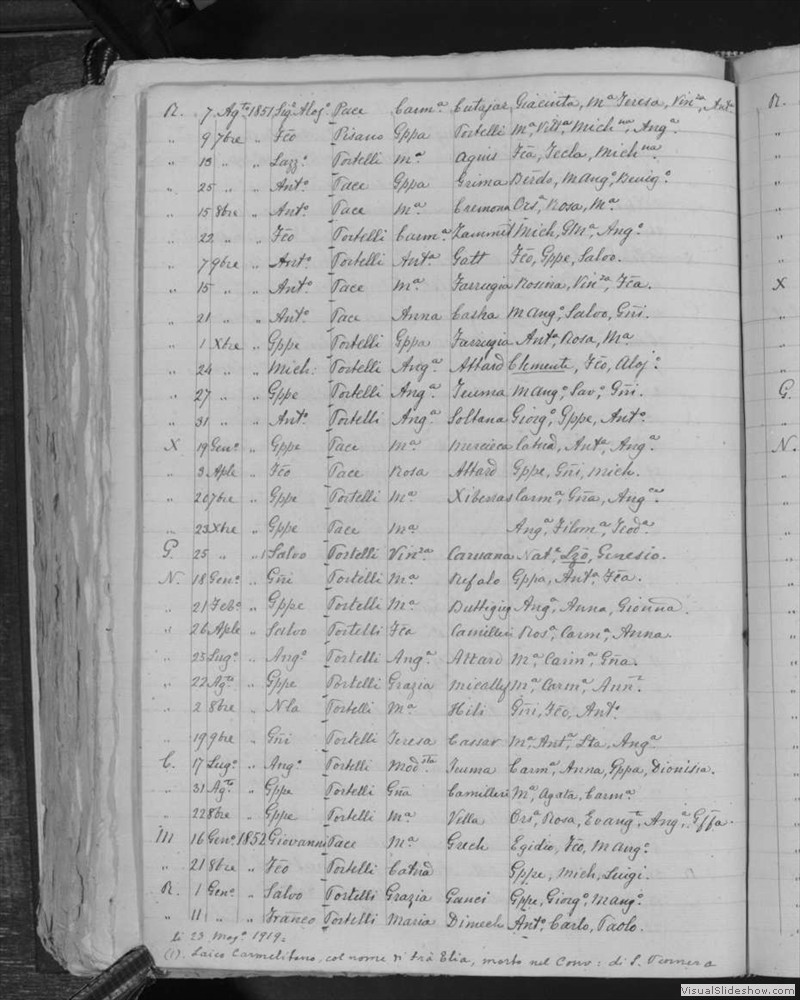 R. 7 Agto 1851 Sigr Alojo Pace Carma Cutajar Giacinta, Ma Teresa, Vinza, Anta
" 9 7bre " Fco Pisano Gppa Portelli Ma Vitta, Michna, Anga
" 13 " " Lazzo Portelli Ma Agius Fca, Tecla, Michna
" 25 " " Anto Pace Gppa Grima Berdo, Mango, Benigo
" 15 8bre " Anto Pace Ma Cremona Orsa, Rosa, Ma
" 22 " " Fco Portelli Carma Zammit Mich, GMa, Ango
" 7 9bre " Anto Portelli Anta Gatt Fco, Gppe, Salvo.
" 15 " " Anto Pace Ma Farrugia Rosina, Vinza, Fca.
" 21 " " Anto Pace Anna Casha Mango, Salvo, Gni.
" 1 Xbre " Gppe Portelli Gppa Farrugia Anta, Rosa, Ma
" 24 " " Mich: Portelli Anga Attard Clemente, Fco, Alojo
" 27 " " Gppe Portelli Anga Teuma Mango, Savo, Gni.
" 31 " " Anto Portelli Anga Soltana Giorgo, Gppe, Anto
X 19 Geno " Gppe Pace Ma Mercieca Catad, Anta, Anga
" 3 Aple " Fco Pace Rosa Attard Gppe, Gni, Mich.
" 2 6/7bre " Gppe Portelli Ma Xiberras Carma, Gna, Angca
" 23 Xbre " Gppe Pace Ma Anga, Filoma, Teoda
G. 25 " " 1 Salvo Portelli Vinza Caruana Nate, Lzo, Genesio.
N. 18 Geno " Gni Portelli Ma Refalo Gppa, Anta, Fca.
" 21 Feba " Gppe Portelli Ma Buttigieg Anga, Anna, Gionna.
" 26 Aple " Salvo Portelli Fca Camilleri Rosa, Carma, Anna.
" 25 Lugo " Ango Portelli Anga Attard Ma, Carma, Gna.
" 22 Agto " Gppe Portelli Grazia Micallef Ma, Carma, Annta
" 2 8bre " Nla Portelli Ma Hili Gni, Fco, Anto
" 19 9bre " Gni Portelli Teresa Cassar Ma, Anta, Sta, Anga
C. 17 Lugo " Ango Portelli Modsta Teuma Carma, Anna, Gppa, Dionisia.
" 31 Agto " Gppe Portelli Gna Camilleri Ma, Agata, Carma
" 22 8bre " Gppe Portelli Ma Vella Orsa, Rosa, Evangta, Anga, Gffa.
M 16 Geno 1852 Giovanni Pace Ma Grech Egidio, Fco, Mango
" 21 8bre " Fco Portelli Catad Gppe, Mich, Luigi.
R. 1 Geno " Salvo Portelli Grazia Ganci Gppe, Giorgo, Mango
" 11 " " Franco Portelli Maria Dimech Anto, Carlo, Paolo.
li 23 Mago 1919.
(1). Laico Carmelitano, col nome di frà Elia, morto nel Conv: di S. Venera
R.
X
G.
N.
VisualSlideshow.com